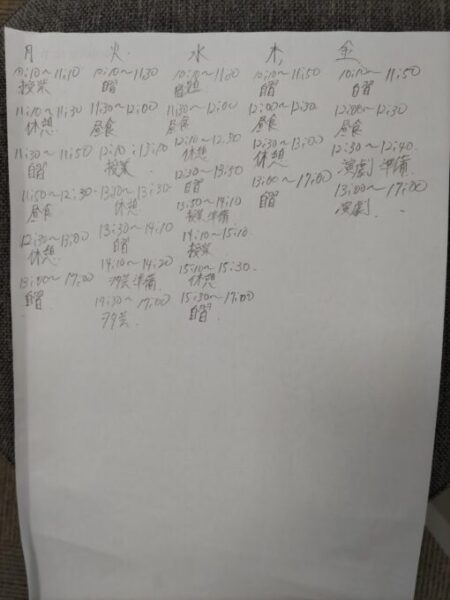 月
10:10～11:10
授業
11:10～11:30
休憩
11:30～11:50
自習
11:50～12:30
昼食
12:30～13:00
休憩
13:00～17:00
自習
火
10:10～11:30
自習
11:30～12:00
昼食
12:10～13:10
授業
13:10～13:30
休憩
13:30～14:10
自習
14:10～14:20
ヲタ芸準備
14:30～17:00
ヲタ芸
水
10:10～11:30
自習
11:30～12:00
昼食
12:10～12:30
休憩
12:30～13:50
自習
13:50～14:10
授業準備
14:10～15:10
授業
15:10～15:30
休憩
15:30～17:00
自習
木
10:10～11:50
自習
12:00～12:30
昼食
12:30～13:00
休憩
13:00～17:00
自習
金
10:10～11:50
自習
12:00～12:30
昼食
12:30～12:40
演劇準備
13:00～17:00
演劇